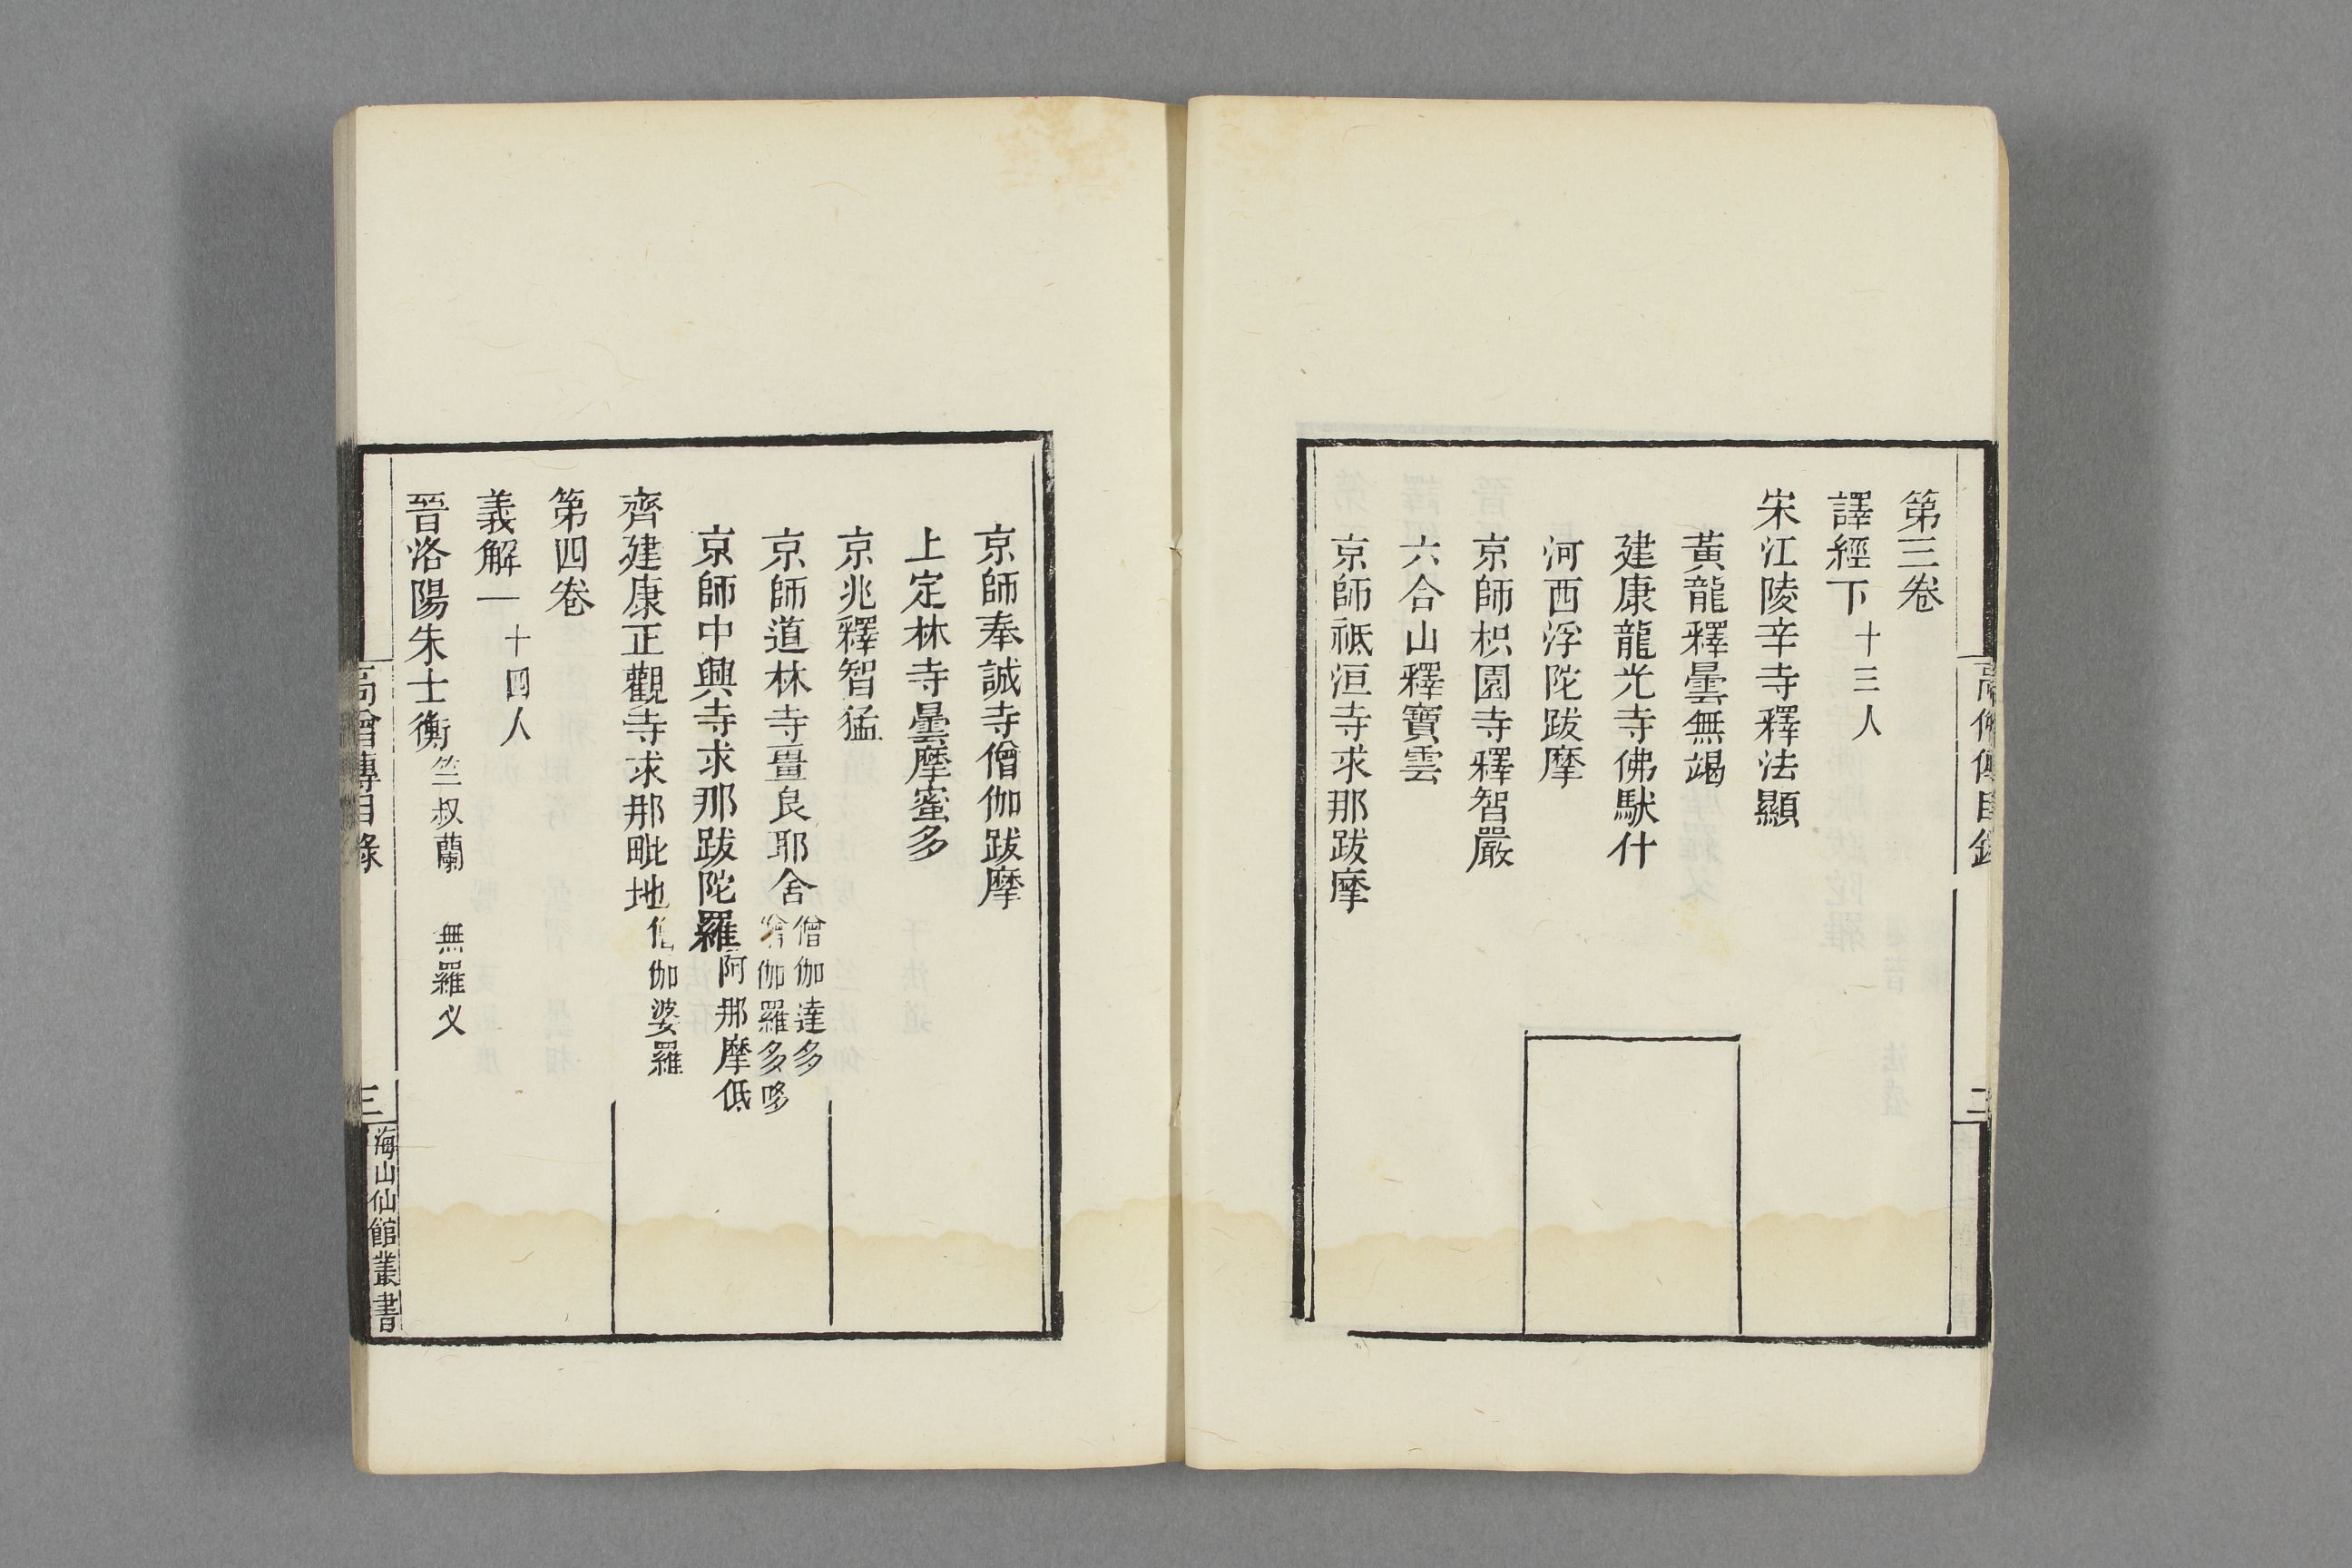 第三卷
譯經下十三人
宋江陵辛寺釋法顯
黃龍釋曇無竭
建康龍光寺佛馱什
河西浮陀跋摩
京師枳園寺釋智嚴
六合山釋寶雲
京師祇洹寺求那跋摩
京師奉誠寺僧伽跋摩
上定林寺曇摩蜜多
京兆釋智猛
京師道林寺畺良耶舍僧伽達多 僧伽羅多哆
京師中興寺求那跋陀羅阿那摩低
齊建康正觀寺求那毗地僧伽婆羅
第四卷
義解一十四人
晉洛陽朱士衡竺叔蘭 無羅义
高僧傳目錄
三
海山仙館叢書